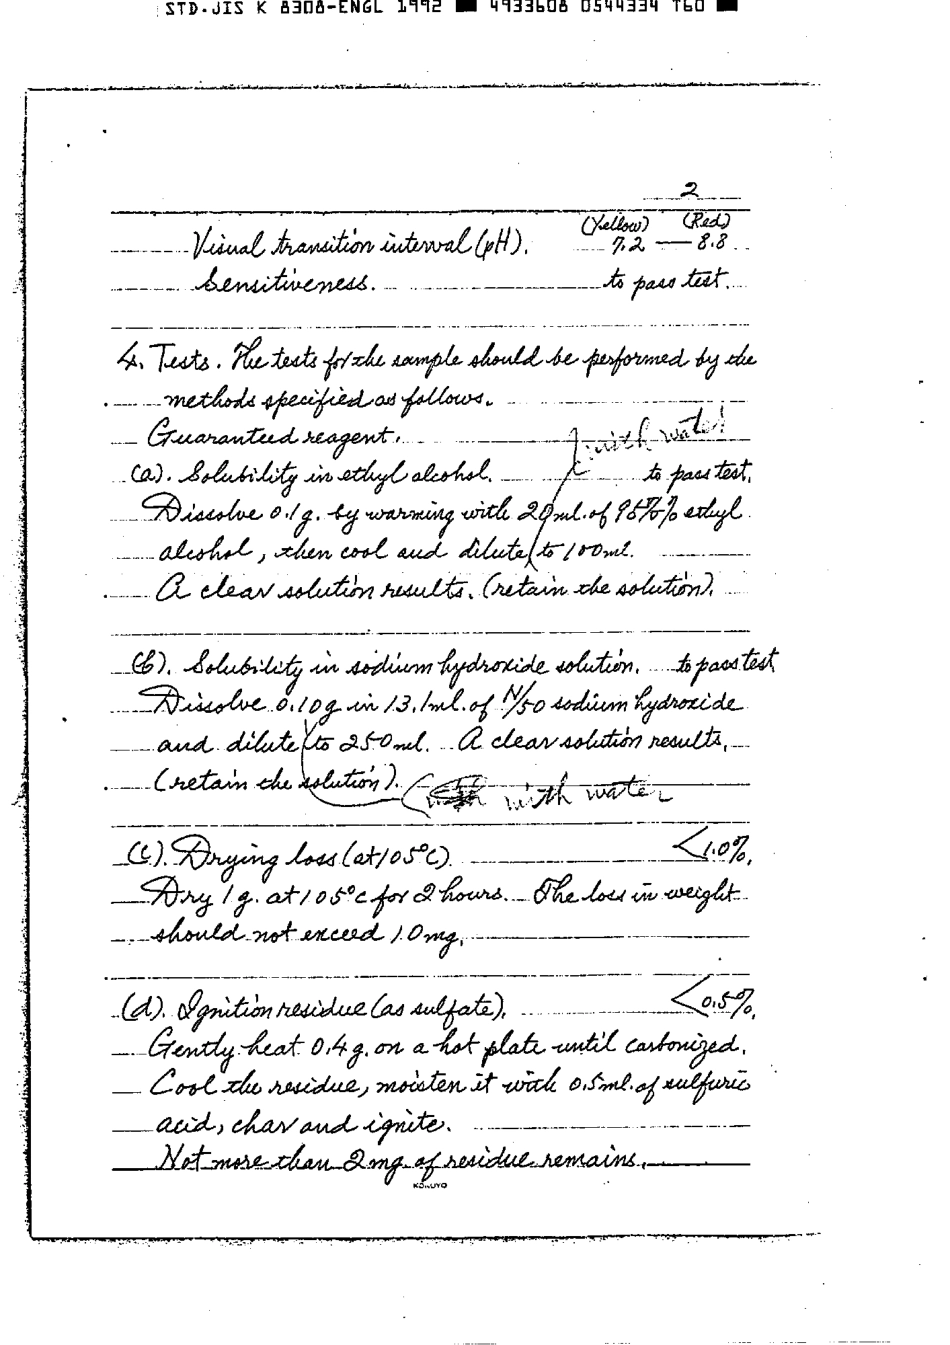 STD·JIS K 8308-ENGL 1992 ■ 4933608 0544334 T60 ■
2
(Yellow) (Red)
Visual transition interval (pH). 7.2 — 8.8
Sensitiveness. to pass test.
4. Tests. The tests for the sample should be performed by the
methods specified as follows.
Guaranteed reagent. with water
(a). Solubility in ethyl alcohol. to pass test.
Dissolve 0.1g. by warming with 20ml. of 95% ethyl
alcohol, then cool and dilute to 100ml.
A clear solution results. (retain the solution).
(b). Solubility in sodium hydroxide solution. to pass test
Dissolve 0.10g in 13.1ml. of N/50 sodium hydroxide
and dilute to 250ml. A clear solution results,
(retain the solution). with water
(c). Drying loss (at 105°C) <1.0%.
Dry 1g. at 105°c for 2 hours. The loss in weight
should not exceed 10mg.
(d). Ignition residue (as sulfate). <0.5%.
Gently heat 0.4g. on a hot plate until carbonized.
Cool the residue, moisten it with 0.5ml. of sulfuric
acid, char and ignite.
Not more than 2mg. of residue remains.
KOKUYO